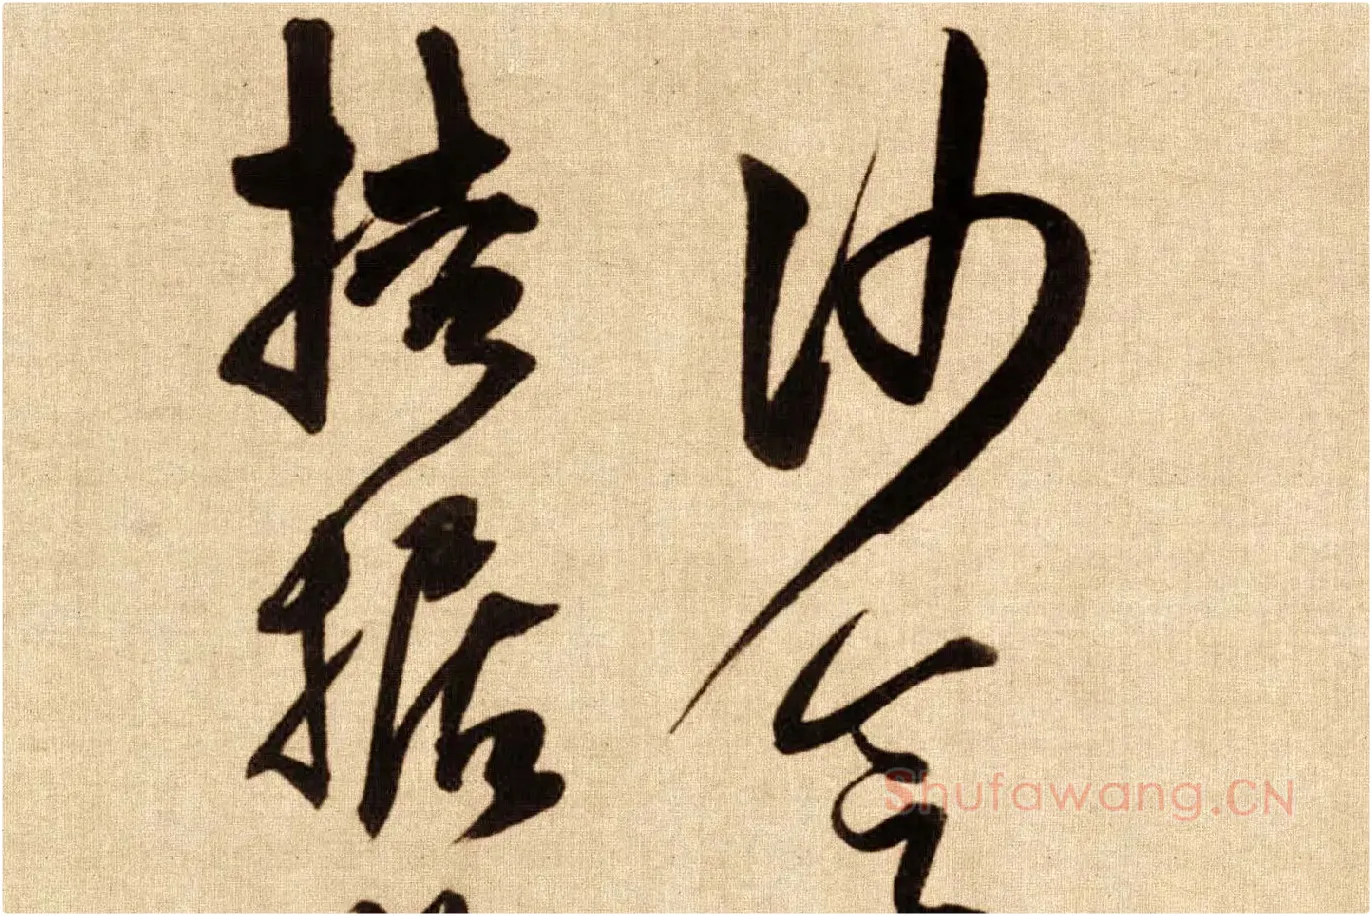 沙
拮据
Shufawang.CN